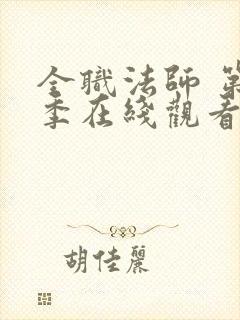 全職法師 第
季在綫觀看
胡佳麗